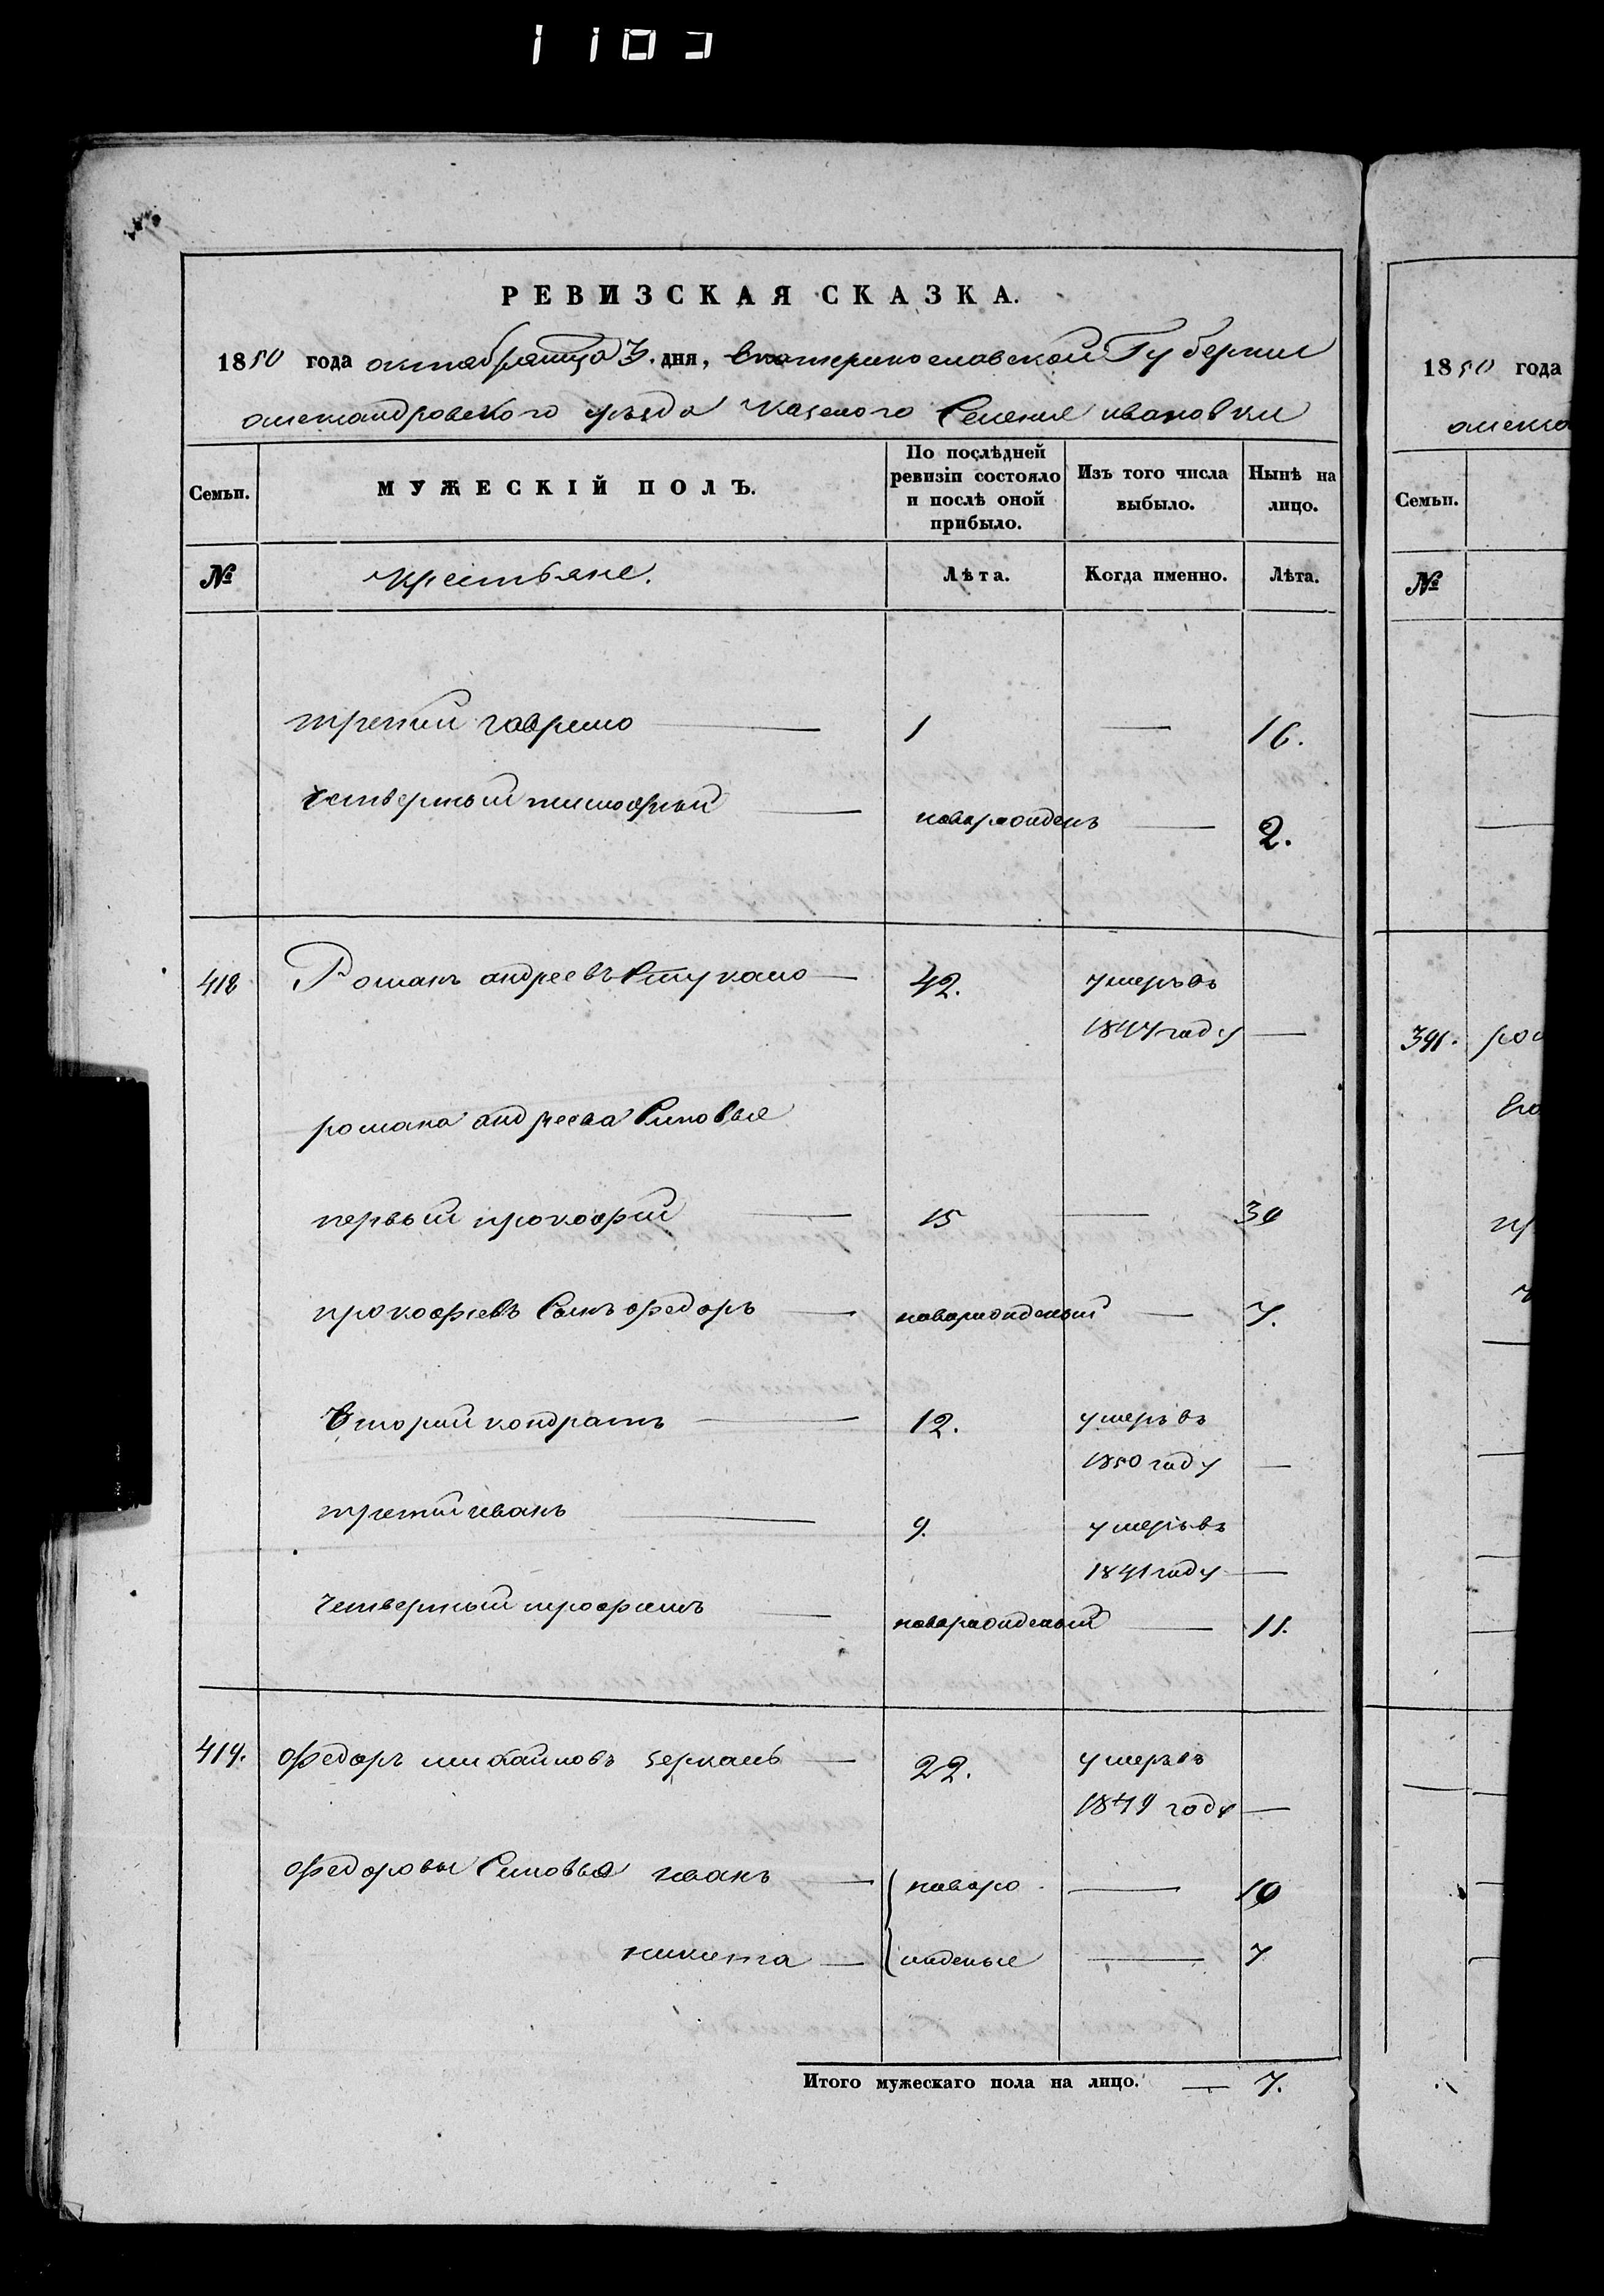 РЕВИЗСКАЯ СКАЗКА.
1850 года октября дня, Екатеринославской Губернии
александровского уезда казеного Селения ивановки
Семьи.
МУЖЕСКІЙ ПОЛЪ.
По послѣдней ревизіи состояло и послѣ оной прибыло.
Изъ того числа выбыло.
Нынѣ на лицо.
№ крестьяне. Лѣта. Когда именно. Лѣта.
третий гаврило — 1 — 16.
четвертый тимофий — наварожденъ — 2.
418 Романъ андреевъ Стукало — 42. умеръ въ
1847 году —
романа андреева Сыновья
первый прокофий — 15 — 30
прокофиевъ Сынъ федоръ — наварожденый — 7.
Вторий кондратъ — 12. умеръ въ
1850 году —
третий иванъ — 9. умеръ въ
1841 году —
четвертый трофимъ — наварожденый — 11.
419. федоръ михайловъ — 22. умеръ въ
1849 году —
федоровы Сыновья иванъ — наваро — 10
никита — жденые — 7
Итого мужескаго пола на лицо. — 7.
1850 года
Семьи.
№
391.